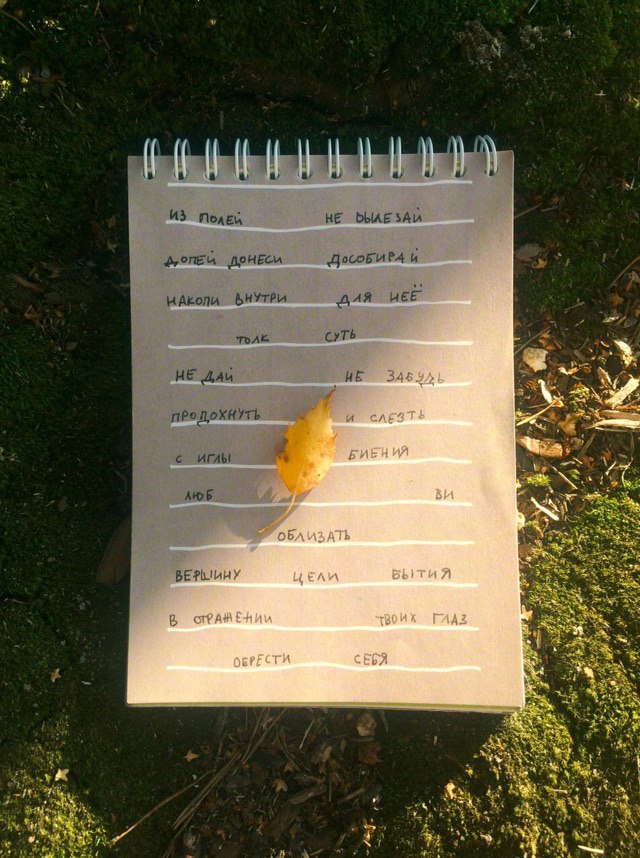 ИЗ ПОЛЕЙ НЕ ВЫЛЕЗАЙ
ДОПЕЙ ДОНЕСИ ДОСОБИРАЙ
НАКОПИ ВНУТРИ ДЛЯ НЕЁ
ТОЛК СУТЬ
НЕ ДАЙ НЕ ЗАБУДЬ
ПРОДОХНУТЬ И СЛЕЗТЬ
С ИГЛЫ БИЕНИЯ
ЛЮБ ВИ
ОБЛИЗАТЬ
ВЕРШИНУ ЦЕЛИ БЫТИЯ
В ОТРАЖЕНИИ ТВОИХ ГЛАЗ
ОБРЕСТИ СЕБЯ